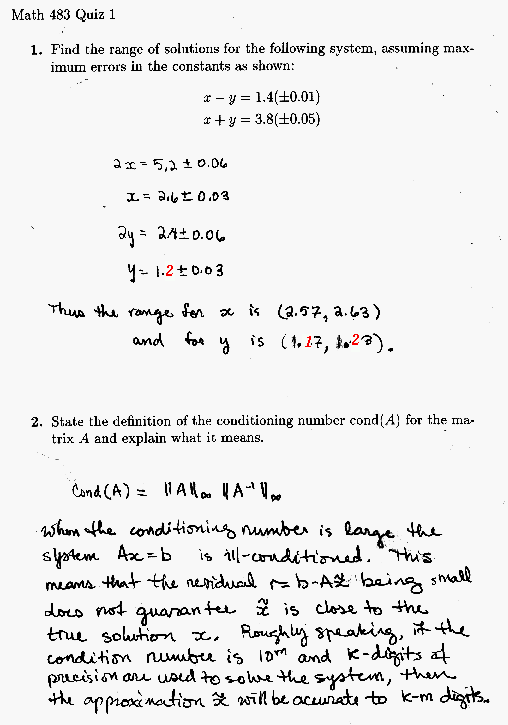 Math 483 Quiz 1
1. Find the range of solutions for the following system, assuming max-
imum errors in the constants as shown:
x − y = 1.4(±0.01)
x + y = 3.8(±0.05)
2x = 5.2 ± 0.06
x = 2.6 ± 0.03
2y = 2.4 ± 0.06
y = 1.2 ± 0.03
Thus the range for x is (2.57, 2.63)
and for y is (1.17, 1.23).
2. State the definition of the conditioning number cond(A) for the ma-
trix A and explain what it means.
Cond(A) = ||A||∞ ||A⁻¹||∞
When the conditioning number is large the
system Ax = b is ill-conditioned. This
means that the residual r = b - Ax̃ being small
does not guarantee x̃ is close to the
true solution x. Roughly speaking, if the
condition number is 10ᵐ and k-digits of
precision are used to solve the system, then
the approximation x̃ will be accurate to k-m digits.